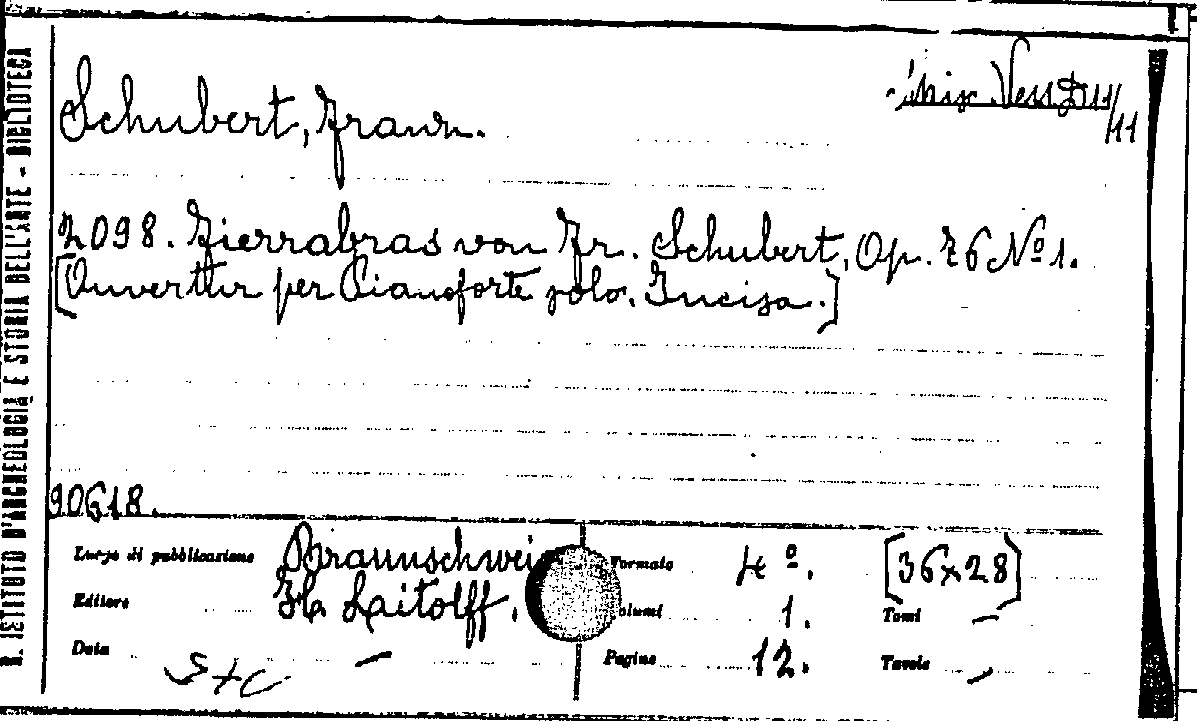 R. ISTITUTO D'ARCHEOLOGIA E STORIA DELL'ARTE - BIBLIOTECA
Schubert, Franz.
Mis. Vess. D11/11
2098. Fierrabras von Fr. Schubert, Op. 76 Nº 1.
[Ouverttur per Pianoforte solo. Incisa.]
90618.
Luogo di pubblicazione Braunschweig
Formato 4º. [36x28]
Editore H. Laitolff.
Volumi 1. Tomi —
Data —
Pagine 12. Tavole —